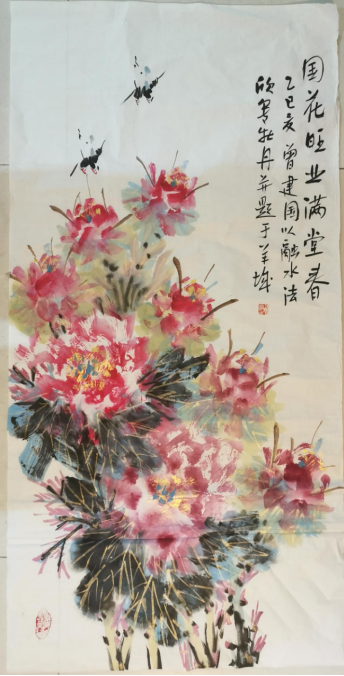 国花旺业满堂春
乙巳亥曾建国以融水法
欣写牡丹并题于羊城